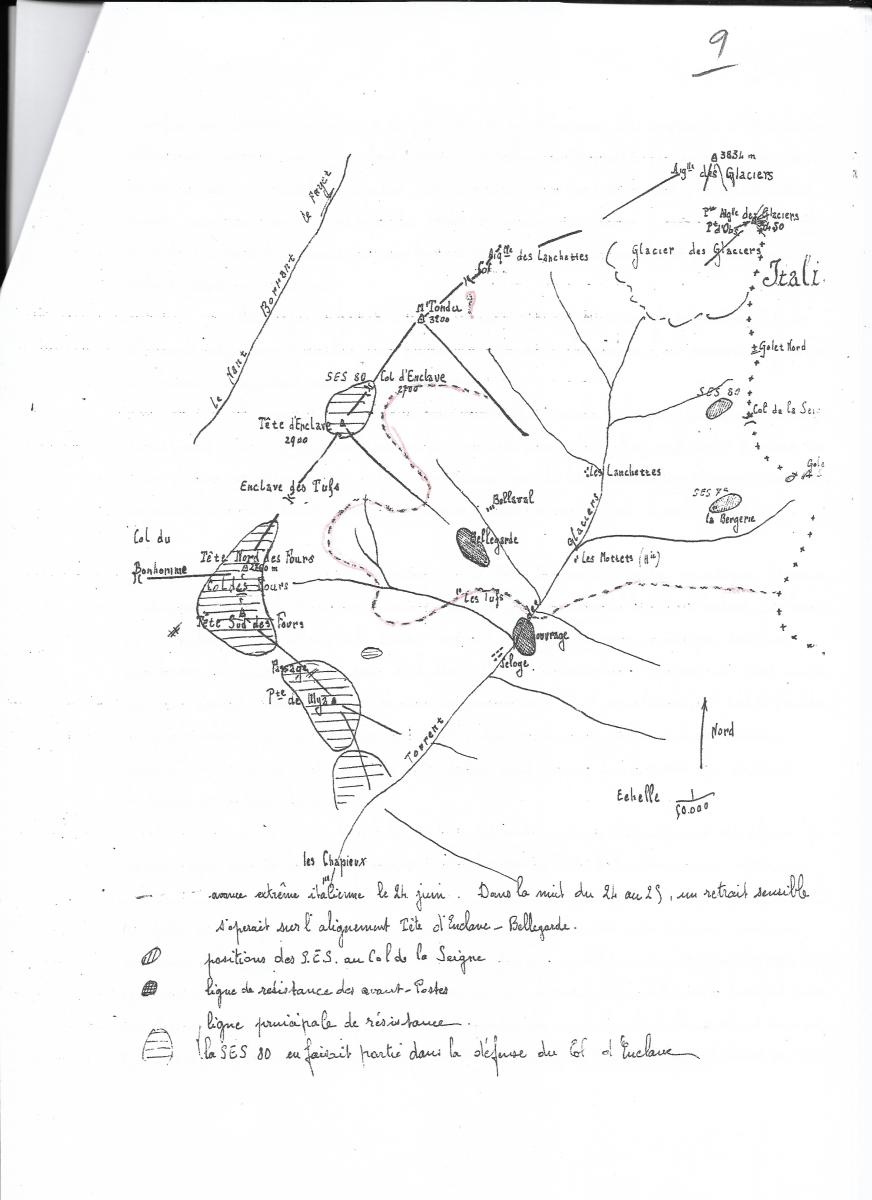 9
3834 m
Aiglle des Glaciers
Pte Aiglle des Glaciers
Pt d'Obs
Glacier des Glaciers
Itali
le Fayet
Le Nant Borrant
Aiglle des Lanchettes
Col
Mt Tondu
3200
Golet Nord
SES 80
Col d'Enclave
2700
SES 80
Col de la Sei
Tête d'Enclave
2900
Enclave des Tufs
les Lanchettes
SES 7e
la Bergerie
Bellaval
Glaciers
Col du
Bonhomme
Tête Nord des Fours
Bellegarde
les Mottets
Col des Fours
les Tufs
Tête Sud des Fours
ouvrage
Seloge
Passage
Pte de Mya
Torrent
Nord
Echelle 1
50.000
les Chapieux
avance extrême italienne le 24 juin. Dans la nuit du 24 au 25, un retrait sensible
s'operait sur l'alignement Tête d'Enclave - Bellegarde.
positions des S.E.S. au Col de la Seigne
ligne de résistance des avant-Postes
ligne principale de résistance.
la SES 80 en faisait partie dans la défense du Col d'Enclave